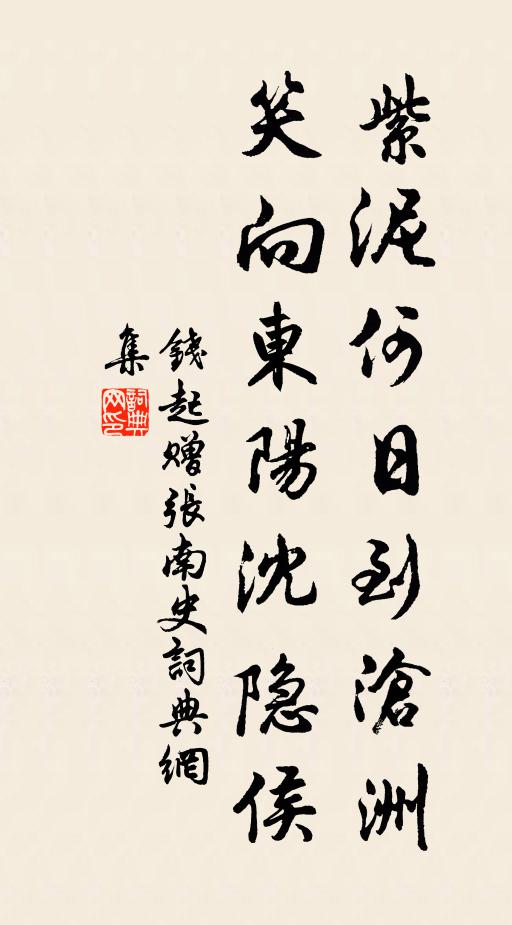 紫泥何日到滄洲
笑向東陽沈隐侯
錢起赠張南史詞典網
集
詞典网印